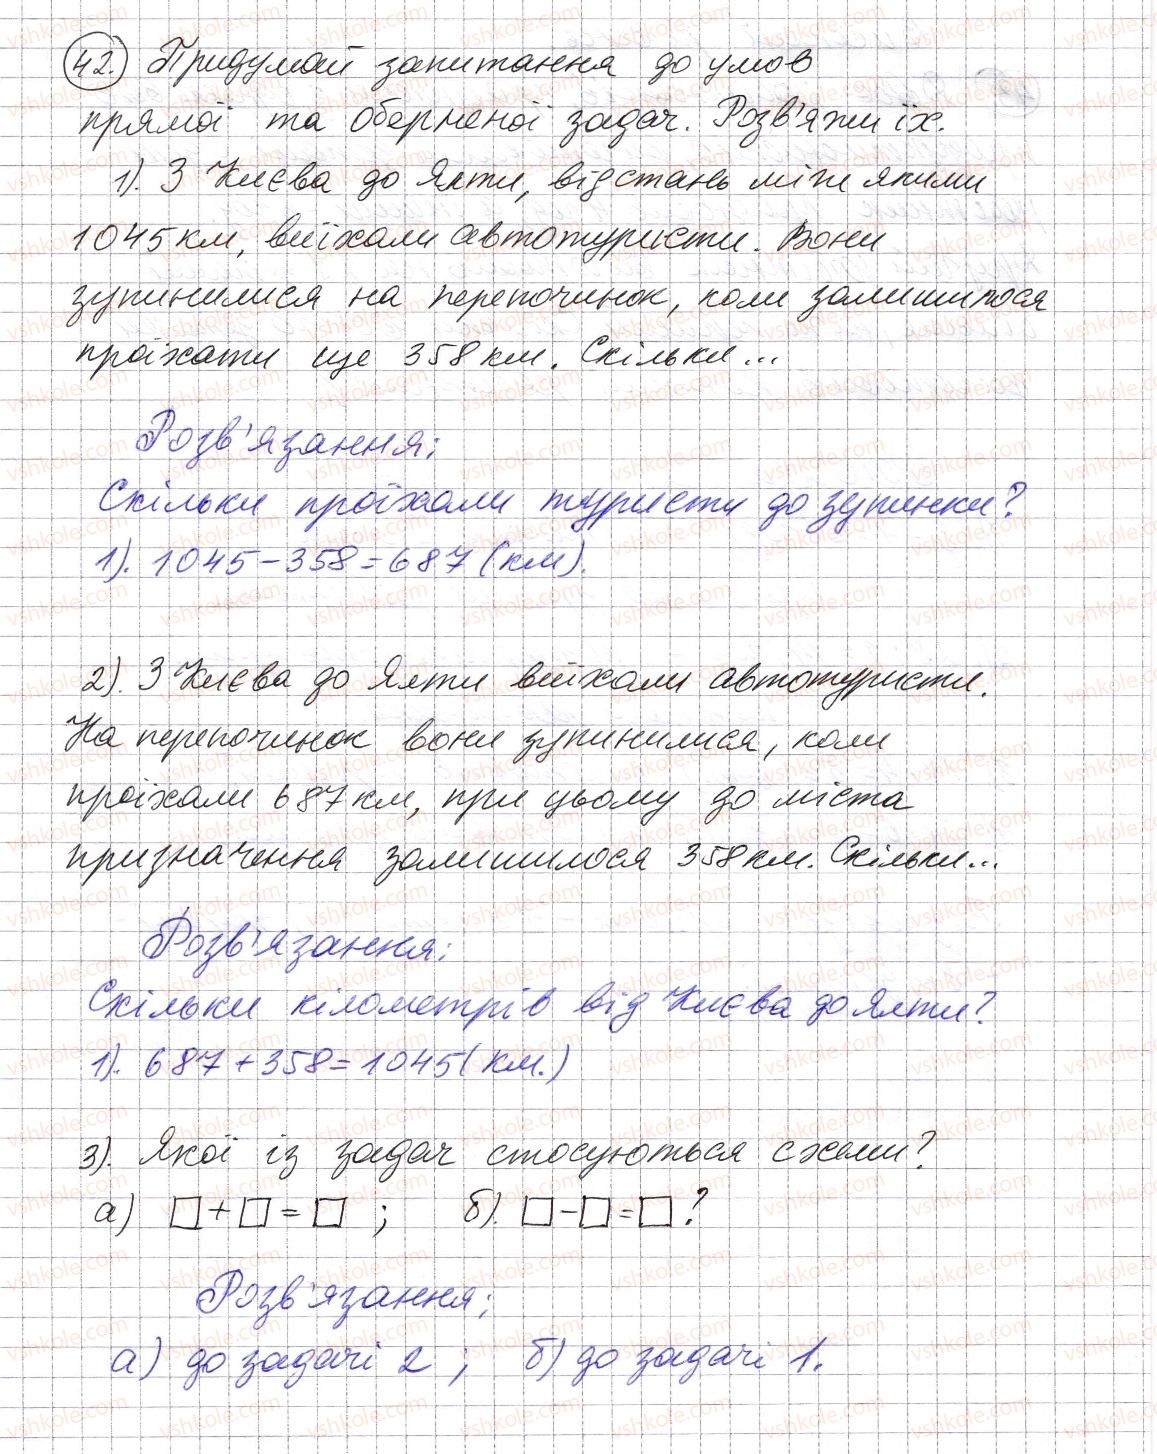 42.) Придумай запитання до умов
прямої та оберненої задач. Розв'яжи їх.
1). З Києва до Ялти, відстань між якими
1045 км, виїхали автотуристи. Вони
зупинилися на перепочинок, коли залишилося
проїхати ще 358 км. Скільки...
Розв'язання:
Скільки проїхали туристи до зупинки?
1). 1045 - 358 = 687 (км).
2). З Києва до Ялти виїхали автотуристи.
На перепочинок вони зупинилися, коли
проїхали 687 км, при цьому до міста
призначення залишилося 358 км. Скільки...
Розв'язання:
Скільки кілометрів від Києва до Ялти?
1). 687 + 358 = 1045 (км.)
3). Якої із задач стосуються схеми?
а) □ + □ = □ ; б). □ - □ = □ ?
Розв'язання:
а) до задачі 2 ; б) до задачі 1.